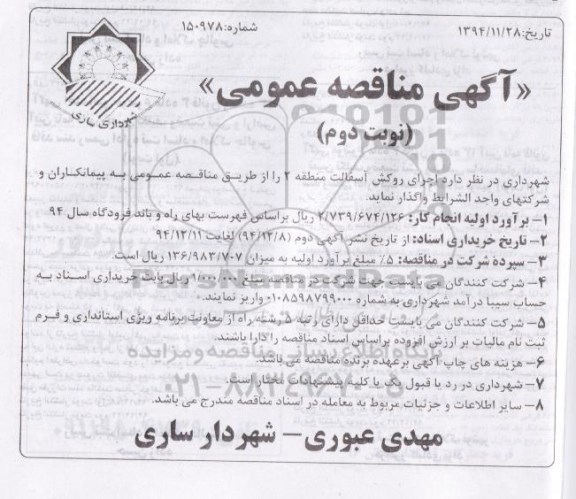 تاریخ: ۱۳۹۴/۱۱/۲۸
شماره: ۱۵۰۹۷۸
شهرداری ساری
«آگهی مناقصه عمومی»
(نوبت دوم)
شهرداری در نظر دارد اجرای روکش آسفالت منطقه ۲ را از طریق مناقصه عمومی به پیمانکاران و
شرکتهای واجد الشرایط واگذار نماید.
۱- برآورد اولیه انجام کار: ۲/۷۳۹/۶۷۴/۱۲۶ ریال براساس فهرست بهای راه و باند فرودگاه سال ۹۴
۲- تاریخ خریداری اسناد: از تاریخ نشر آگهی دوم (۹۴/۱۲/۸) لغایت ۹۴/۱۲/۱۱
۳- سپرده شرکت در مناقصه: ۵٪ مبلغ برآورد اولیه به میزان ۱۳۶/۹۸۳/۷۰۷ ریال است.
۴- شرکت کنندگان می بایست جهت شرکت در مناقصه مبلغ ۱/۰۰۰/۰۰۰ ریال بابت خریداری اسناد به
حساب سیبا درآمد شهرداری به شماره ۰۱۰۸۵۹۸۷۹۹۰۰۰ واریز نمایند.
۵- شرکت کنندگان می بایست حداقل دارای رتبه ۵ رشته راه از معاونت برنامه ریزی استانداری و فرم
ثبت نام مالیات بر ارزش افزوده براساس اسناد مناقصه را دارا باشند.
۶- هزینه های چاپ آگهی برعهده برنده مناقصه می باشد.
۷- شهرداری در رد یا قبول یک یا کلیه پیشنهادات مختار است.
۸- سایر اطلاعات و جزئیات مربوط به معامله در اسناد مناقصه مندرج می باشد.
مهدی عبوری - شهردار ساری
ParsNamadData
پایگاه اطلاع رسانی مناقصه و مزایده